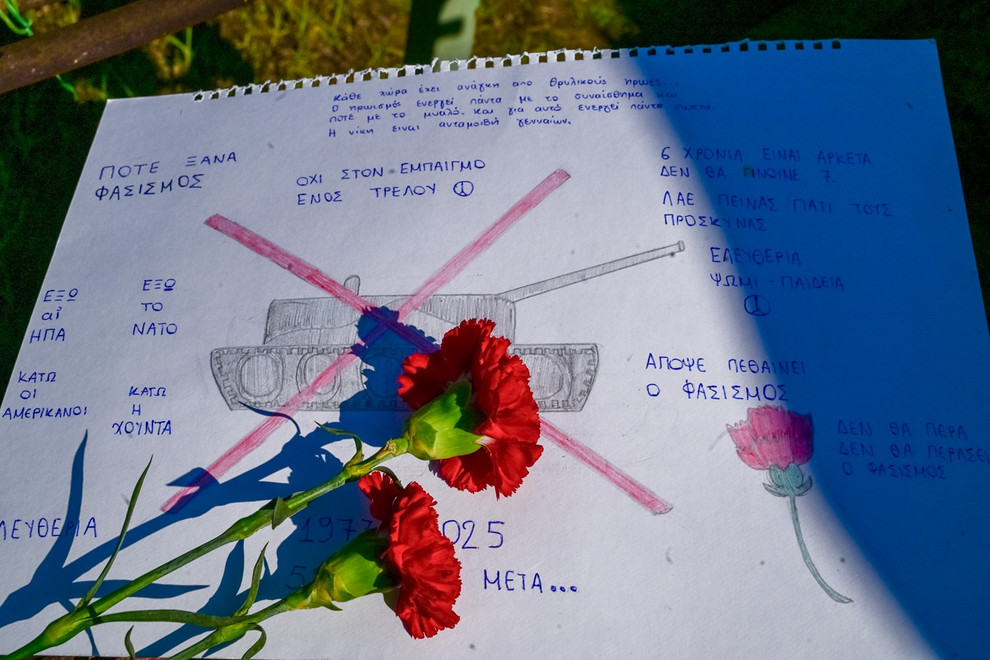 Κάθε χώρα έχει ανάγκη απο θρυλικούς ήρωες...
Ο ηρωισμός ενεργεί πάντα με το συναίσθημα και
ποτέ με το μυαλό. Και για αυτό ενεργεί πάντα σωστα.
Η νίκη είναι ανταμοιβή γενναίων.
ΠΟΤΕ ΞΑΝΑ
ΦΑΣΙΣΜΟΣ
ΟΧΙ ΣΤΟΝ ΕΜΠΑΙΓΜΟ
ΕΝΟΣ ΤΡΕΛΟΥ
6 ΧΡΟΝΙΑ ΕΙΝΑΙ ΑΡΚΕΤΑ
ΔΕΝ ΘΑ ΓΙΝΟΥΝΕ 7
ΛΑΕ ΠΕΙΝΑΣ ΓΙΑΤΙ ΤΟΥΣ
ΠΡΟΣΚΥΝΑΣ
ΕΛΕΥΘΕΡΙΑ
ΨΩΜΙ - ΠΑΙΔΕΙΑ
ΕΞΩ
αἱ
ΗΠΑ
ΕΞΩ
ΤΟ
ΝΑΤΟ
ΚΑΤΩ
ΟΙ
ΑΜΕΡΙΚΑΝΟΙ
ΚΑΤΩ
Η
ΧΟΥΝΤΑ
ΑΠΟΨΕ ΠΕΘΑΙΝΕΙ
Ο ΦΑΣΙΣΜΟΣ
ΔΕΝ ΘΑ ΠΕΡΑ
ΔΕΝ ΘΑ ΠΕΡΑΣΕΙ
Ο ΦΑΣΙΣΜΟΣ
ΛΕΥΘΕΡΙΑ
197 025
5 ΜΕΤΑ...